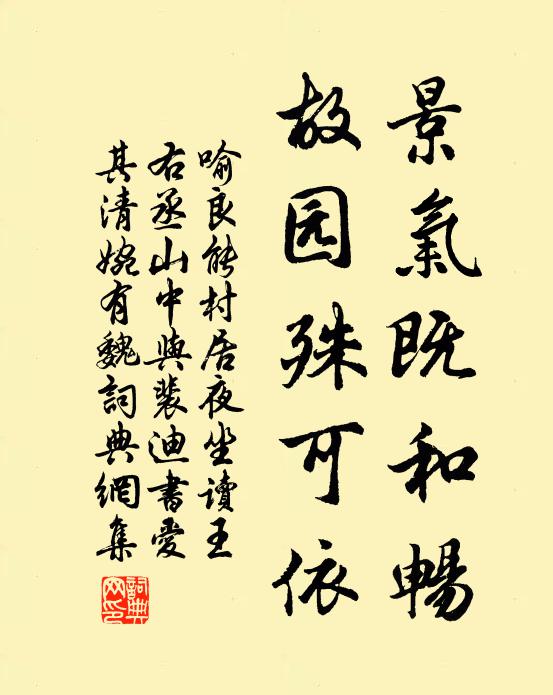 景氣既和暢
故园殊可依
喻良能村居夜坐讀王
右丞山中與裴迪書愛
其清婉有魏詞典網集
詞典
网印